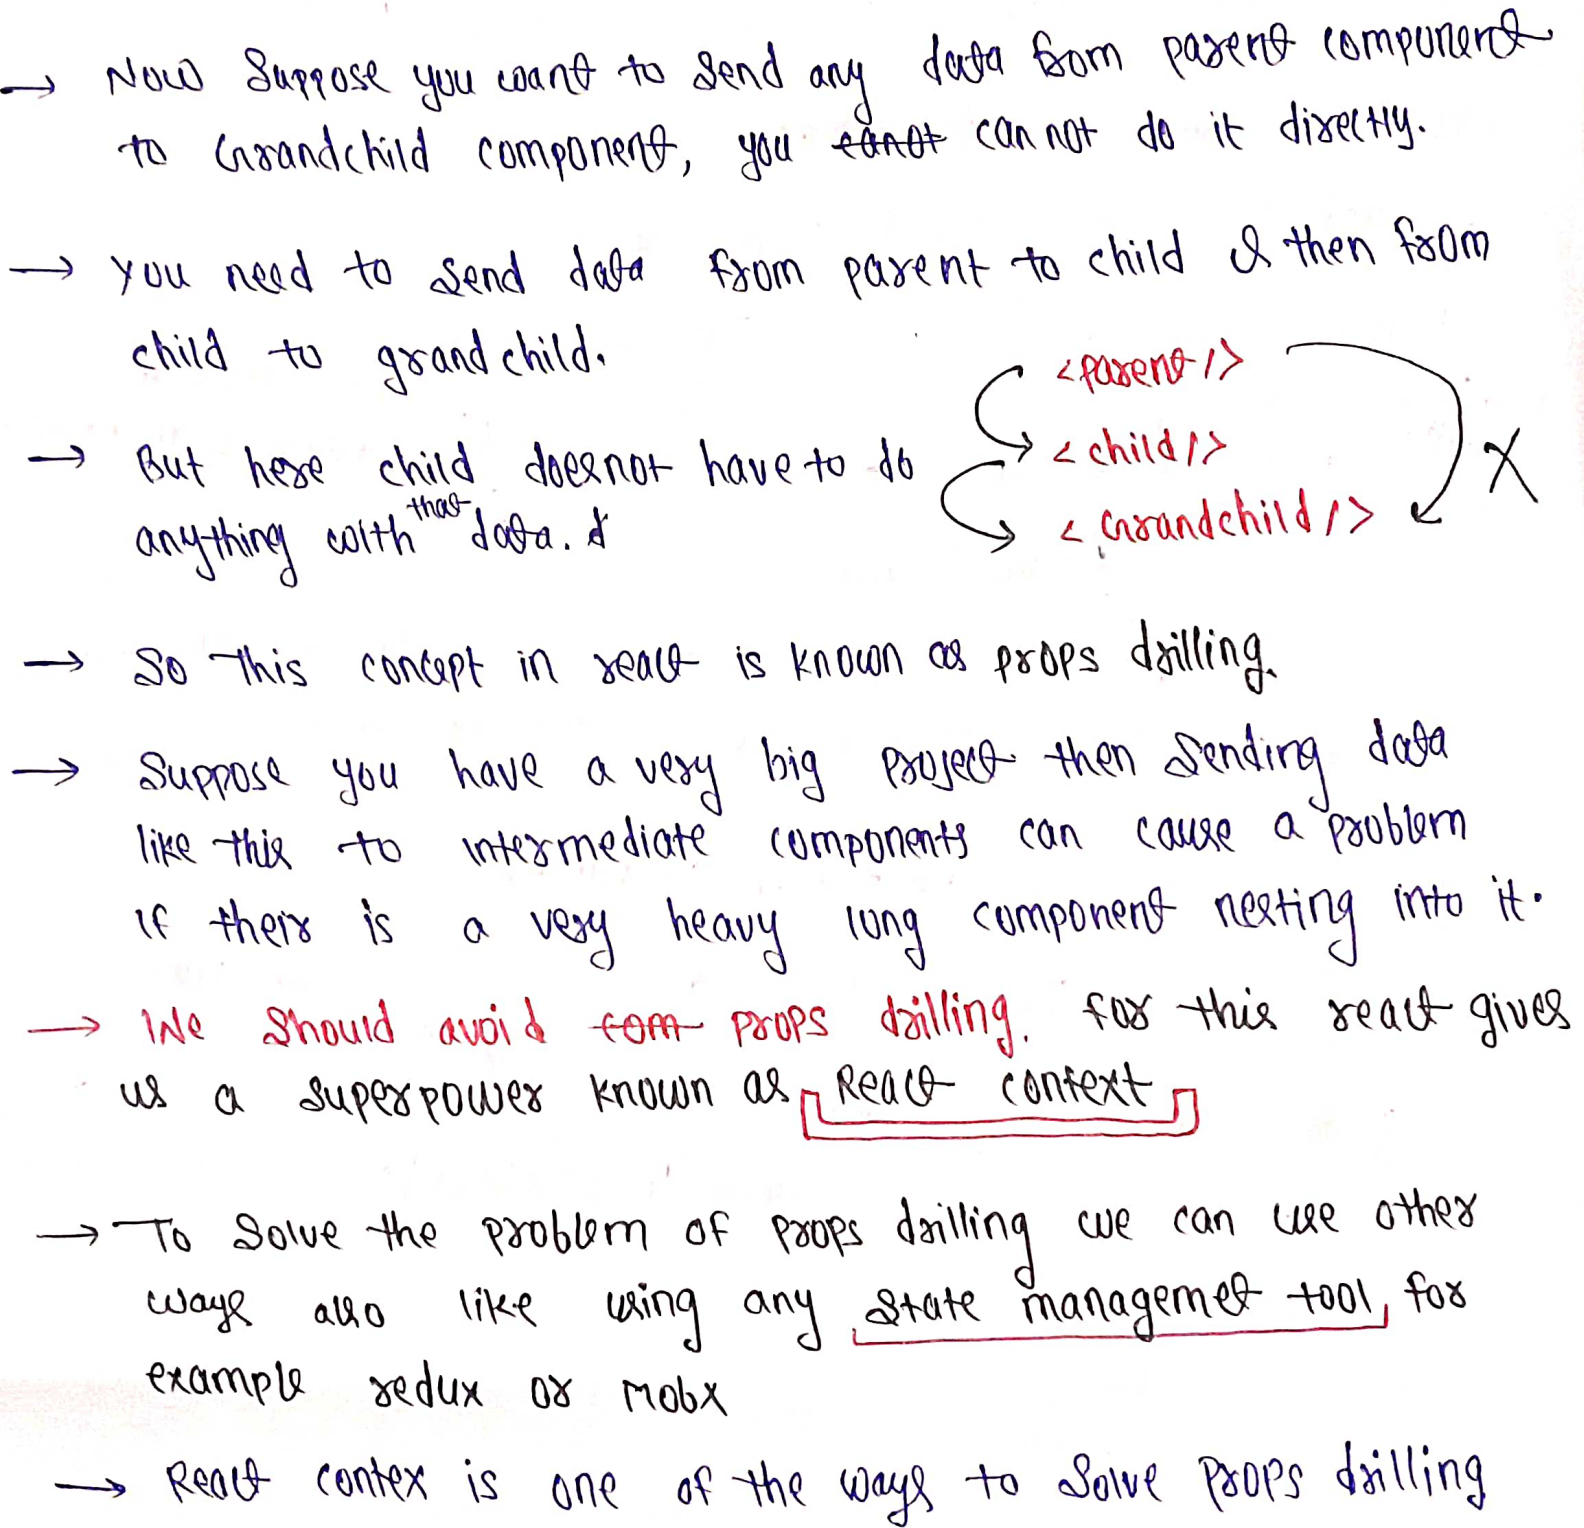 → Now Suppose you want to send any data from parent component
to Grandchild component, you canot can not do it directly.
→ you need to send data from parent to child & then from
child to grand child.
<parent />
→ But here child doesnot have to do
<child />
anything with that data. &
<Grandchild />
X
→ So this concept in react is known as props drilling.
→ Suppose you have a very big project then sending data
like this to intermediate components can cause a problem
if their is a very heavy long component nesting into it.
→ We should avoid com props drilling. for this react gives
us a superpower known as React context
→ To solve the problem of props drilling we can use other
ways also like using any state managemet tool, for
example redux or mobx
→ React contex is one of the ways to solve props drilling